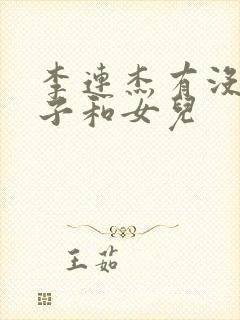 李連杰有沒
子和女兒
王茹